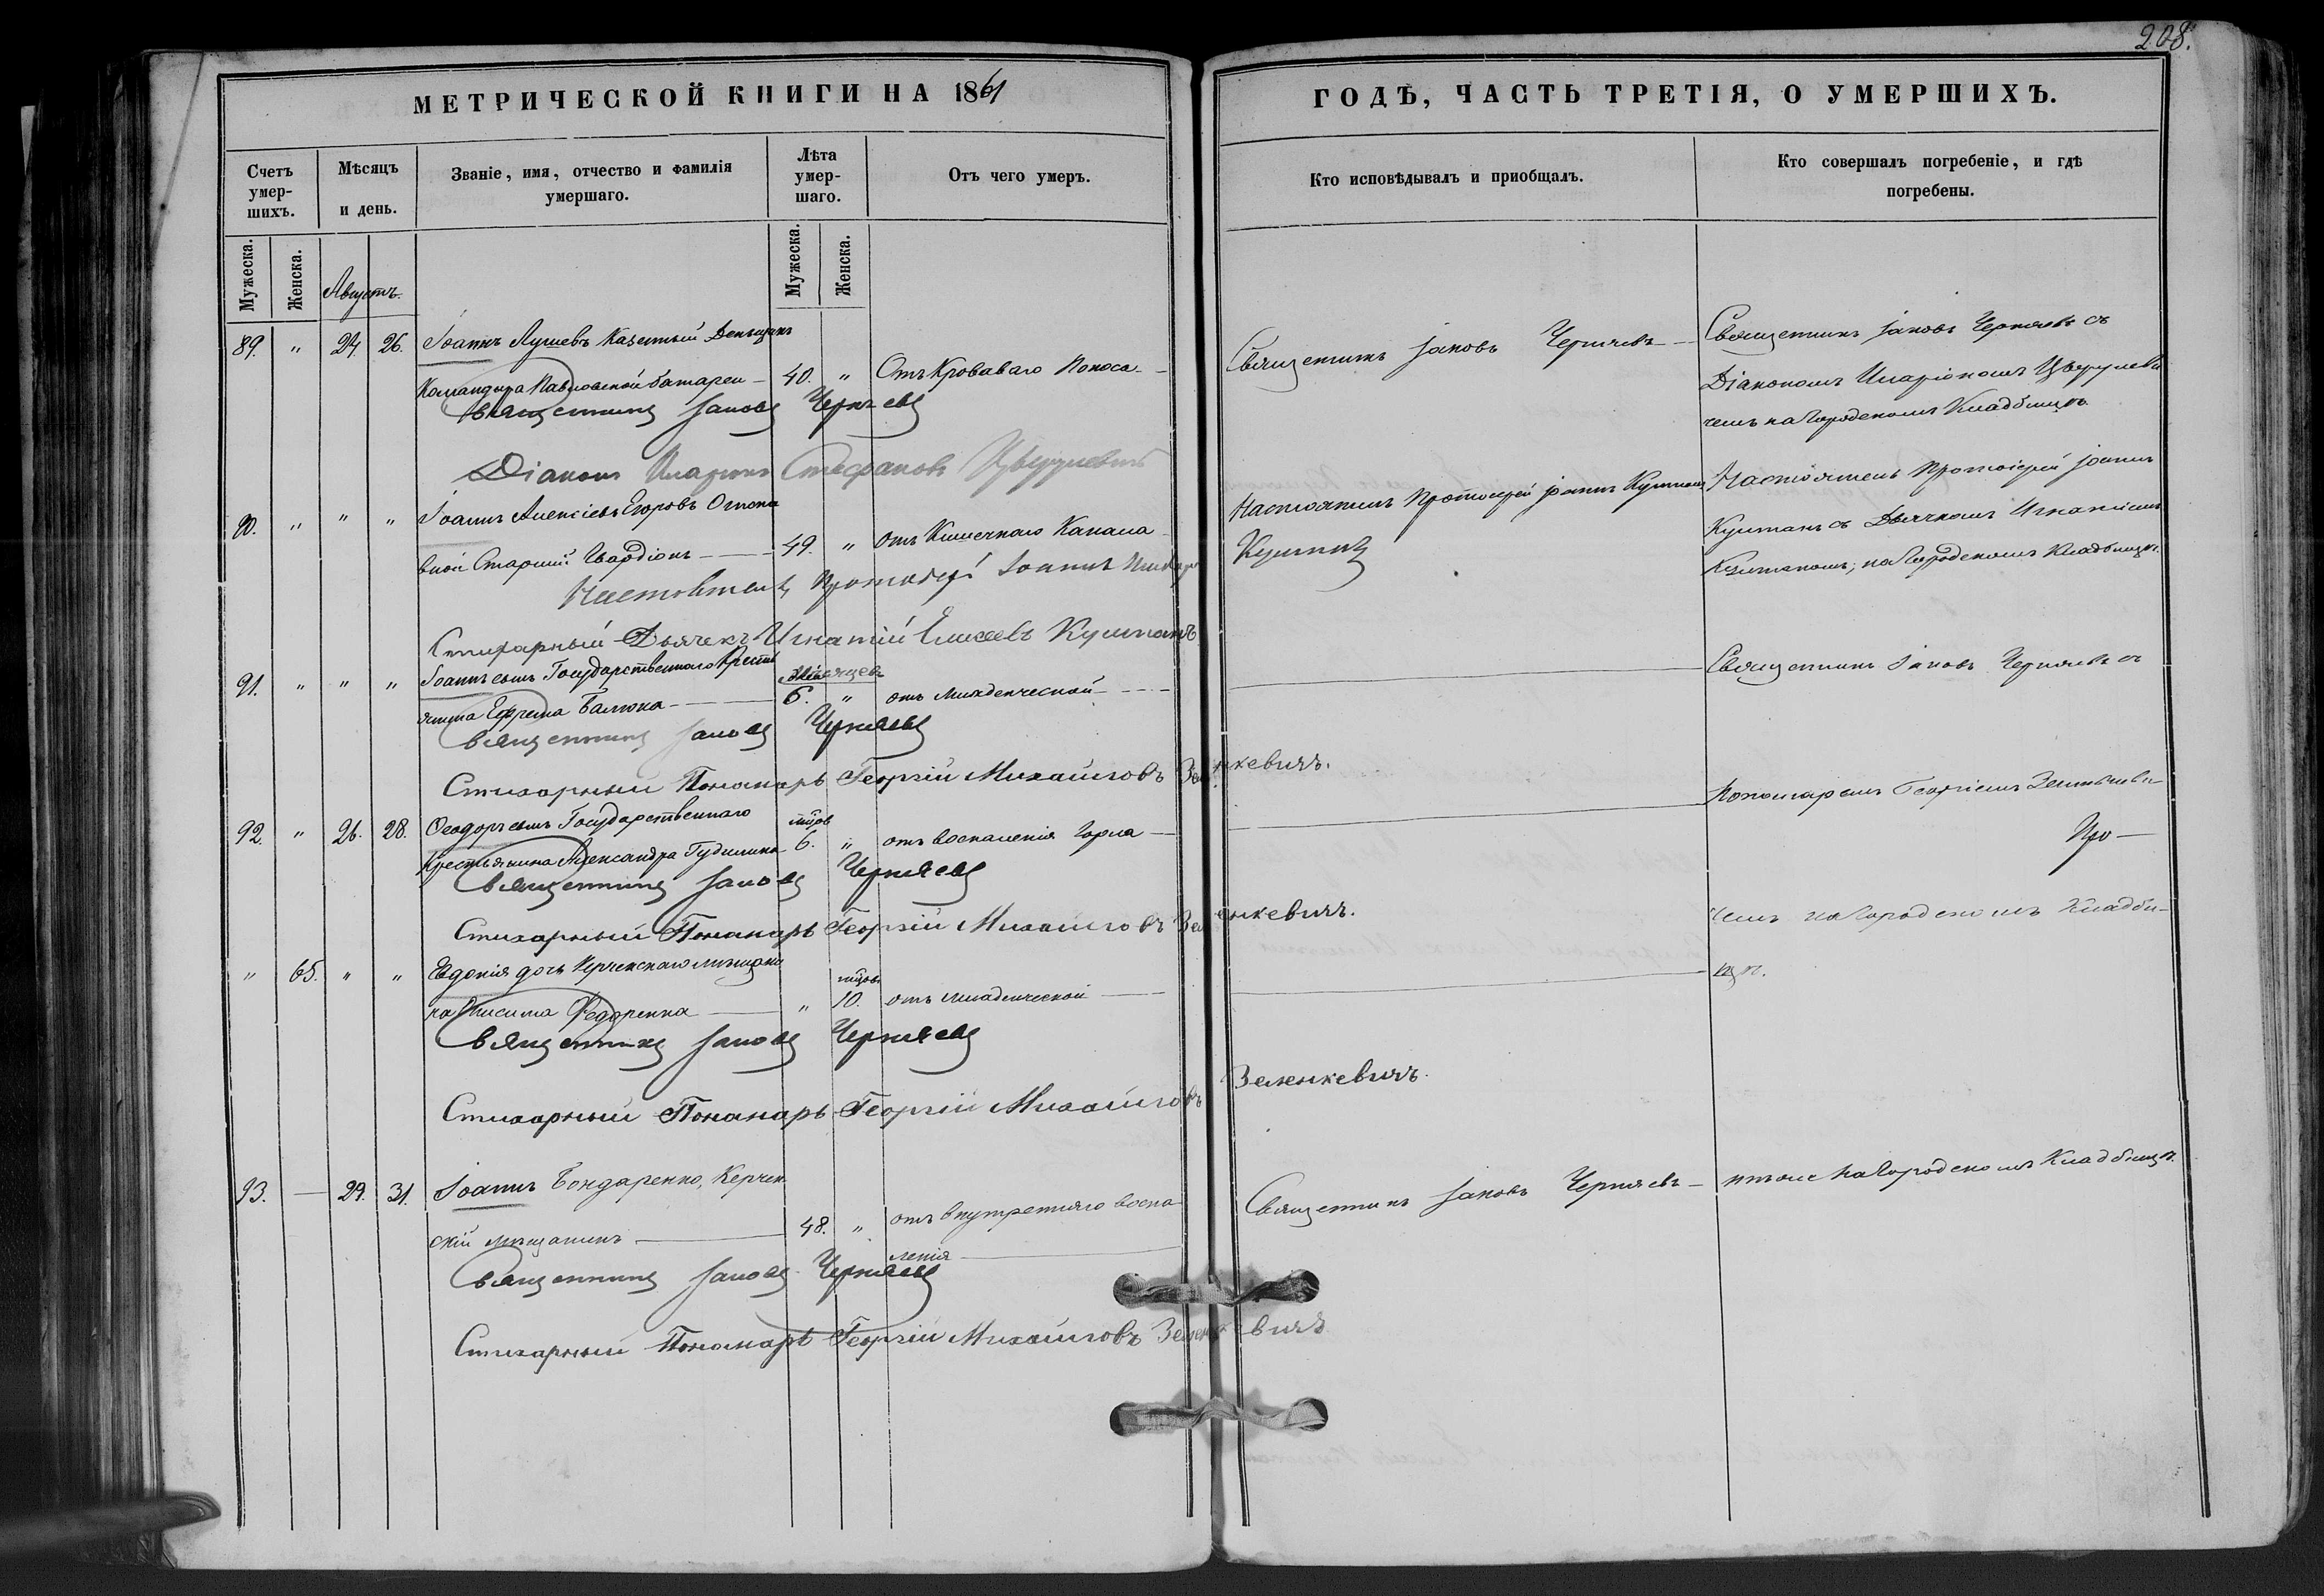 208.
МЕТРИЧЕСКОЙ КНИГИ НА 1861
ГОДѢ, ЧАСТЬ ТРЕТІЯ, О УМЕРШИХЪ.
Счетъ умер-шихъ.
Мѣсяцъ и день.
Званіе, имя, отчество и фамилія умершаго.
Лѣта умер-шаго.
Отъ чего умеръ.
Кто исповѣдывалъ и пріобщалъ.
Кто совершалъ погребеніе, и гдѣ погребены.
Мужеска.
Женска.
Августъ.
Мужеска.
Женска.
89. " 24 26. Іоаннъ Лушевъ Казенный Денщикъ
Командира Павловской батареи — 40. " Отъ Кроваваго Поноса —
Священникъ Іаковъ Черняевъ
Діаконъ Иларіонъ Стефановъ
Священникъ Іаковъ Черняевъ —
Священникъ Іаковъ Черняевъ съ
Діакономъ Иларіономъ
чемъ на Городскомъ Кладбищѣ.
90. " " " Іоаннъ Алексіевъ Егоровъ
Старшій Гвардіонъ — 49. " отъ Кишечнаго Канала
Настоятель Протоіерей Іоаннъ
Стихарный Дьячекъ Игнатій Елисеевъ Кушпакъ
Настоятель Протоіерей Іоаннъ
Настоятель Протоіерей Іоаннъ
съ Дьячкомъ Игнатіемъ
на Городскомъ Кладбищѣ.
91. " " " Іоаннъ сынъ Государственнаго Кресть
янина Ефрема Балюка — Мѣсяцевъ 6. " отъ младенческой —
Священникъ Іаковъ Черняевъ
Стихарный Понамарь Георгій Михайловъ Зеленкевичъ.
Священникъ Іаковъ Черняевъ съ
Пономаремъ Георгіемъ Зеленкеви-
92. " 26. 28. Ѳеодоръ сынъ Государственнаго
Крестьянина Александра — мцов 6. " отъ воспаленія Горла —
Священникъ Іаковъ Черняевъ
Стихарный Понамарь Георгій Михайловъ Зеленкевичъ.
чемъ на Городскомъ Кладби-
щѣ.
" 65. " " Евдокія дочь Керченскаго мѣщани
на Онисима Федоренка — " мцов 10. отъ младенческой —
Священникъ Іаковъ Черняевъ
Стихарный Понамарь Георгій Михайловъ Зеленкевичъ.
93. — 29. 31. Іоаннъ Бондаренко, Керчен
скій мѣщанинъ — 48. " отъ внутренняго воспа
ленія —
Священникъ Іаковъ Черняевъ
Стихарный Понамарь Георгій Михайловъ Зеленкевичъ
Священникъ Іаковъ Черняевъ —
на Городскомъ Кладбищѣ.